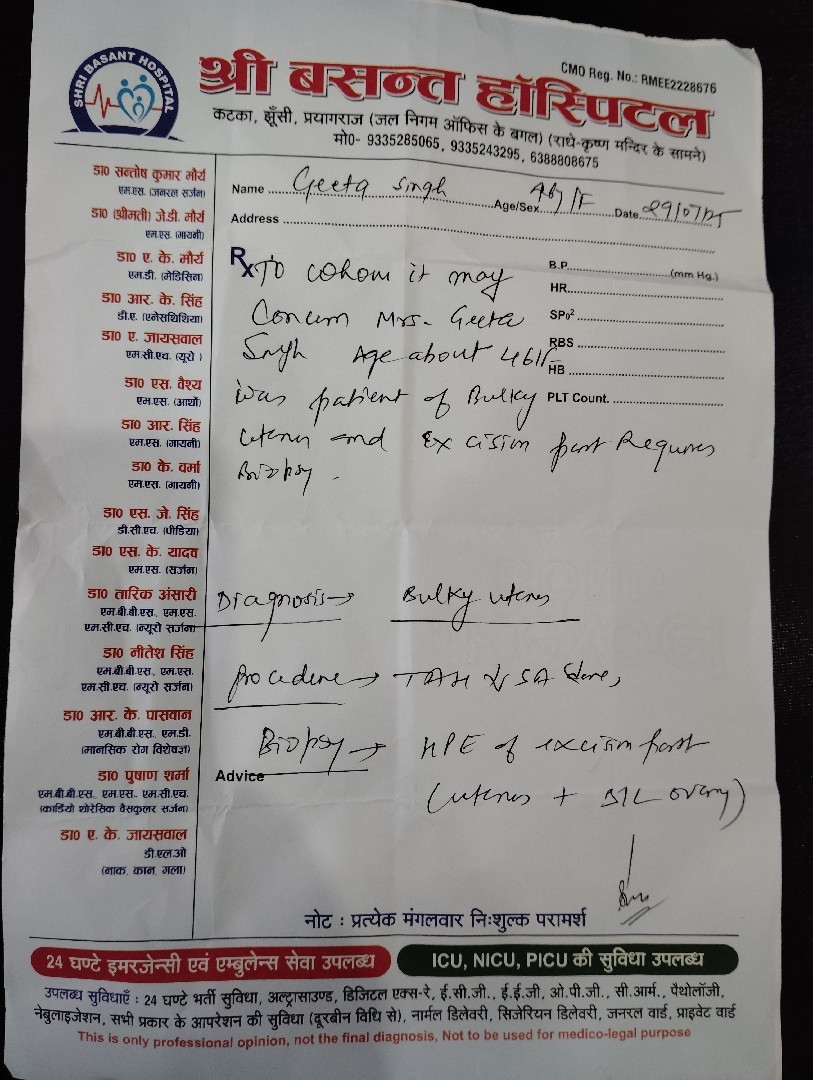 SHRI BASANT HOSPITAL
CMO Reg. No.: RMEE2228676
श्री बसन्त हॉस्पिटल
कटका, झूँसी, प्रयागराज (जल निगम ऑफिस के बगल) (राधे-कृष्ण मन्दिर के सामने)
मो0- 9335285065, 9335243295, 6388808675
डा0 सन्तोष कुमार मौर्य
एम.एस. (जनरल सर्जन)
डा0 (श्रीमती) जे.डी. मौर्य
एम.एस. (गायनी)
डा0 ए. के. मौर्य
एम.डी. (मेडिसिन)
डा0 आर. के. सिंह
डी.ए. (एनेसथिशिया)
डा0 ए. जायसवाल
एम.सी.एच. (यूरो)
डा0 एस. वैश्य
एम.एस. (आर्थो)
डा0 आर. सिंह
एम.एस. (गायनी)
डा0 के. वर्मा
एम.एस. (गायनी)
डा0 एस. जे. सिंह
डी.सी.एच. (पीडिया)
डा0 एस. के. यादव
एम.एस. (सर्जन)
डा0 तारिक अंसारी
एम.बी.बी.एस., एम.एस.
एम.सी.एच. (न्यूरो सर्जन)
डा0 नीतेश सिंह
एम.बी.बी.एस., एम.एस.
एम.सी.एच. (न्यूरो सर्जन)
डा0 आर. के. पासवान
एम.बी.बी.एस., एम.डी.
(मानसिक रोग विशेषज्ञ)
डा0 पुषाण शर्मा
एम.बी.बी.एस., एम.एस., एम.सी.एच.
(कार्डियो थोरेसिक वैसकुलर सर्जन)
डा0 ए. के. जायसवाल
डी.एल.ओ
(नाक, कान, गला)
Name Geeta Singh Age/Sex 46y/F Date 29/07/25
Address
B.P. (mm Hg.)
HR
SPo²
RBS
HB
PLT Count.
Rx To whom it may
Concern Mrs. Geeta
Singh Age about 46/F
was patient of Bulky
uterus and Excision part Requires
Biopsy.
Diagnosis → Bulky uterus
Procedure → TAH SA done,
Biopsy → HPE of excision part
Advice
(uterus + B/L ovary)
नोट : प्रत्येक मंगलवार निःशुल्क परामर्श
24 घण्टे इमरजेन्सी एवं एम्बुलेन्स सेवा उपलब्ध
ICU, NICU, PICU की सुविधा उपलब्ध
उपलब्ध सुविधाएँ : 24 घण्टे भर्ती सुविधा, अल्ट्रासाउण्ड, डिजिटल एक्स-रे, ई.सी.जी., ई.ई.जी, ओ.पी.जी., सी.आर्म., पैथोलॉजी,
नेबुलाइजेशन, सभी प्रकार के आपरेशन की सुविधा (दूरबीन विधि से), नार्मल डिलेवरी, सिजेरियन डिलेवरी, जनरल वार्ड, प्राइवेट वार्ड
This is only professional opinion, not the final diagnosis, Not to be used for medico-legal purpose